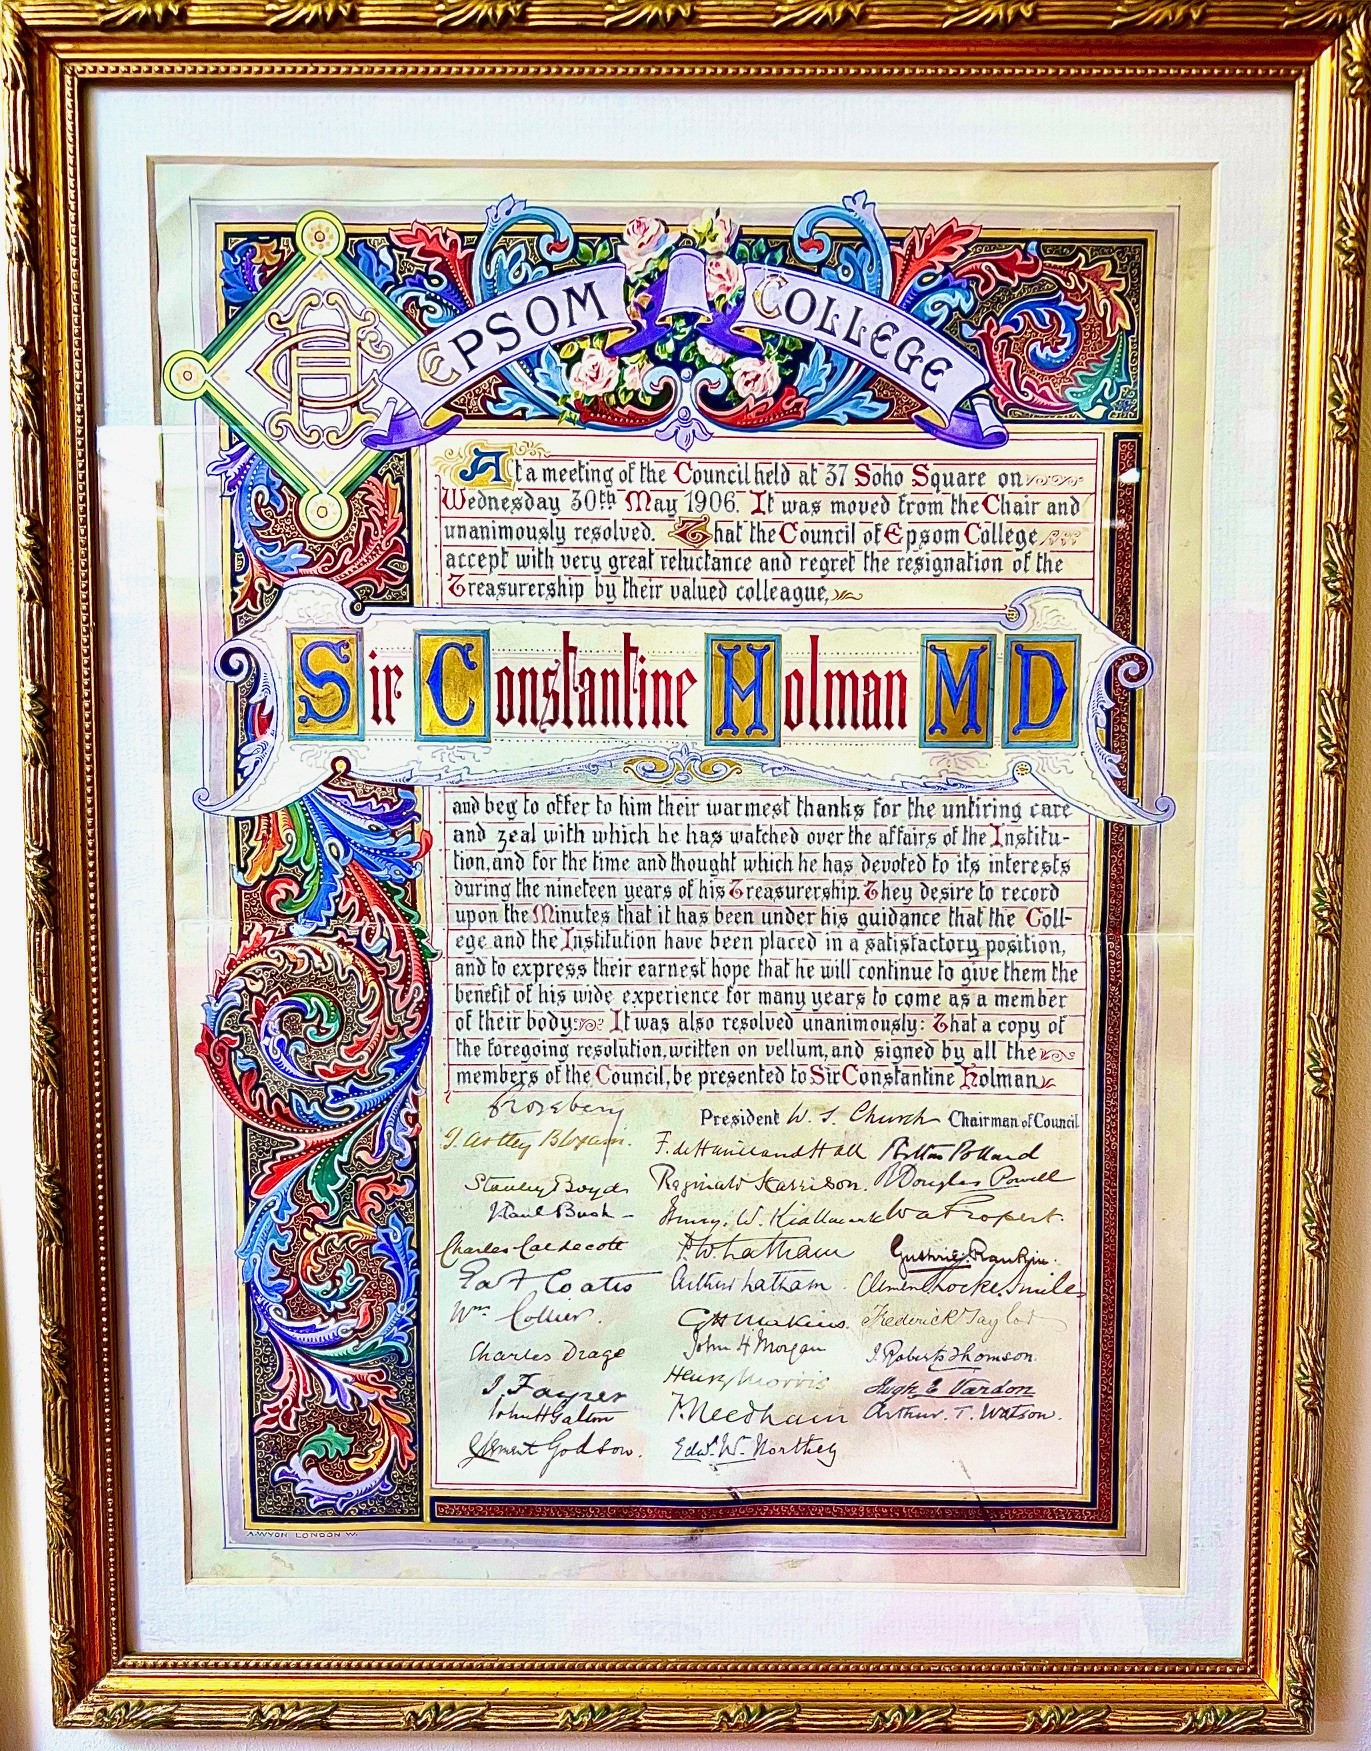 EPSOM COLLEGE
At a meeting of the Council held at 37 Soho Square on
Wednesday 30th May 1906. It was moved from the Chair and
unanimously resolved. That the Council of Epsom College
accept with very great reluctance and regret the resignation of the
Treasurership by their valued colleague,
Sir Constantine Holman MD
and beg to offer to him their warmest thanks for the untiring care
and zeal with which he has watched over the affairs of the Institu-
tion, and for the time and thought which he has devoted to its interests
during the nineteen years of his Treasurership. They desire to record
upon the Minutes that it has been under his guidance that the Coll-
ege and the Institution have been placed in a satisfactory position,
and to express their earnest hope that he will continue to give them the
benefit of his wide experience for many years to come as a member
of their body: It was also resolved unanimously: That a copy of
the foregoing resolution, written on vellum, and signed by all the
members of the Council, be presented to Sir Constantine Holman
Rosebery President W. S. Church Chairman of Council
J. Astley Bloxam. F. de Havilland Hall Bilton Pollard
Stanley Boyd Reginald Harrison. R Douglas Powell
J Paul Bush Henry. W. Kiallmark W a Propert.
Charles Caldecott P. W. Latham Guthrie Rankin.
Coates Arthur Latham Clement Locke Smiles
Wm Collier. G H Makins. Frederick Taylor
Charles Drage John H Morgan J. Roberts Thomson.
J. Fayrer Henry Morris Hugh E Vardon
John H Galton F. Needham Arthur. T. Watson.
Clement Godson. Edwd W. Northey
A. WYON LONDON W.